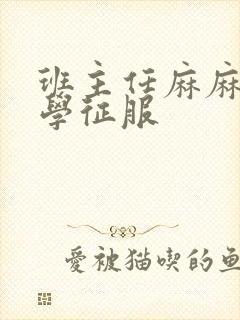 班主任麻麻
學征服
愛被猫喫的鱼